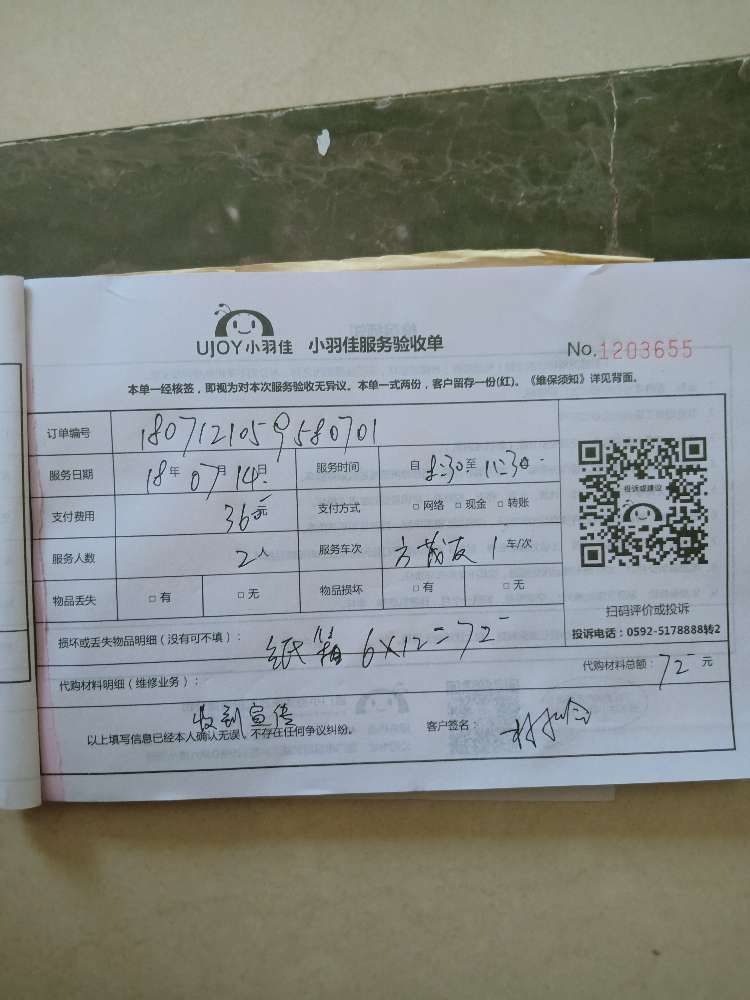 UJOY小羽佳 小羽佳服务验收单 No.1203655
本单一经核签，即视为对本次服务验收无异议。本单一式两份，客户留存一份(红)。《维保须知》详见背面。
订单编号 1807121059580701
服务日期 18年07月14日 服务时间 自8:30至11:30
支付费用 36元 支付方式 □ 网络 □ 现金 □ 转账
服务人数 2人 服务车次 方茂友 1 车/次
物品丢失 □ 有 □ 无 物品损坏 □ 有 □ 无
投诉或建议
扫码评价或投诉
投诉电话：0592-5178888转2
损坏或丢失物品明细（没有可不填）： 纸箱 6×12=72
代购材料明细（维修业务）： 代购材料总额：72元
收到宣传
以上填写信息已经本人确认无误、不存在任何争议纠纷。 客户签名：